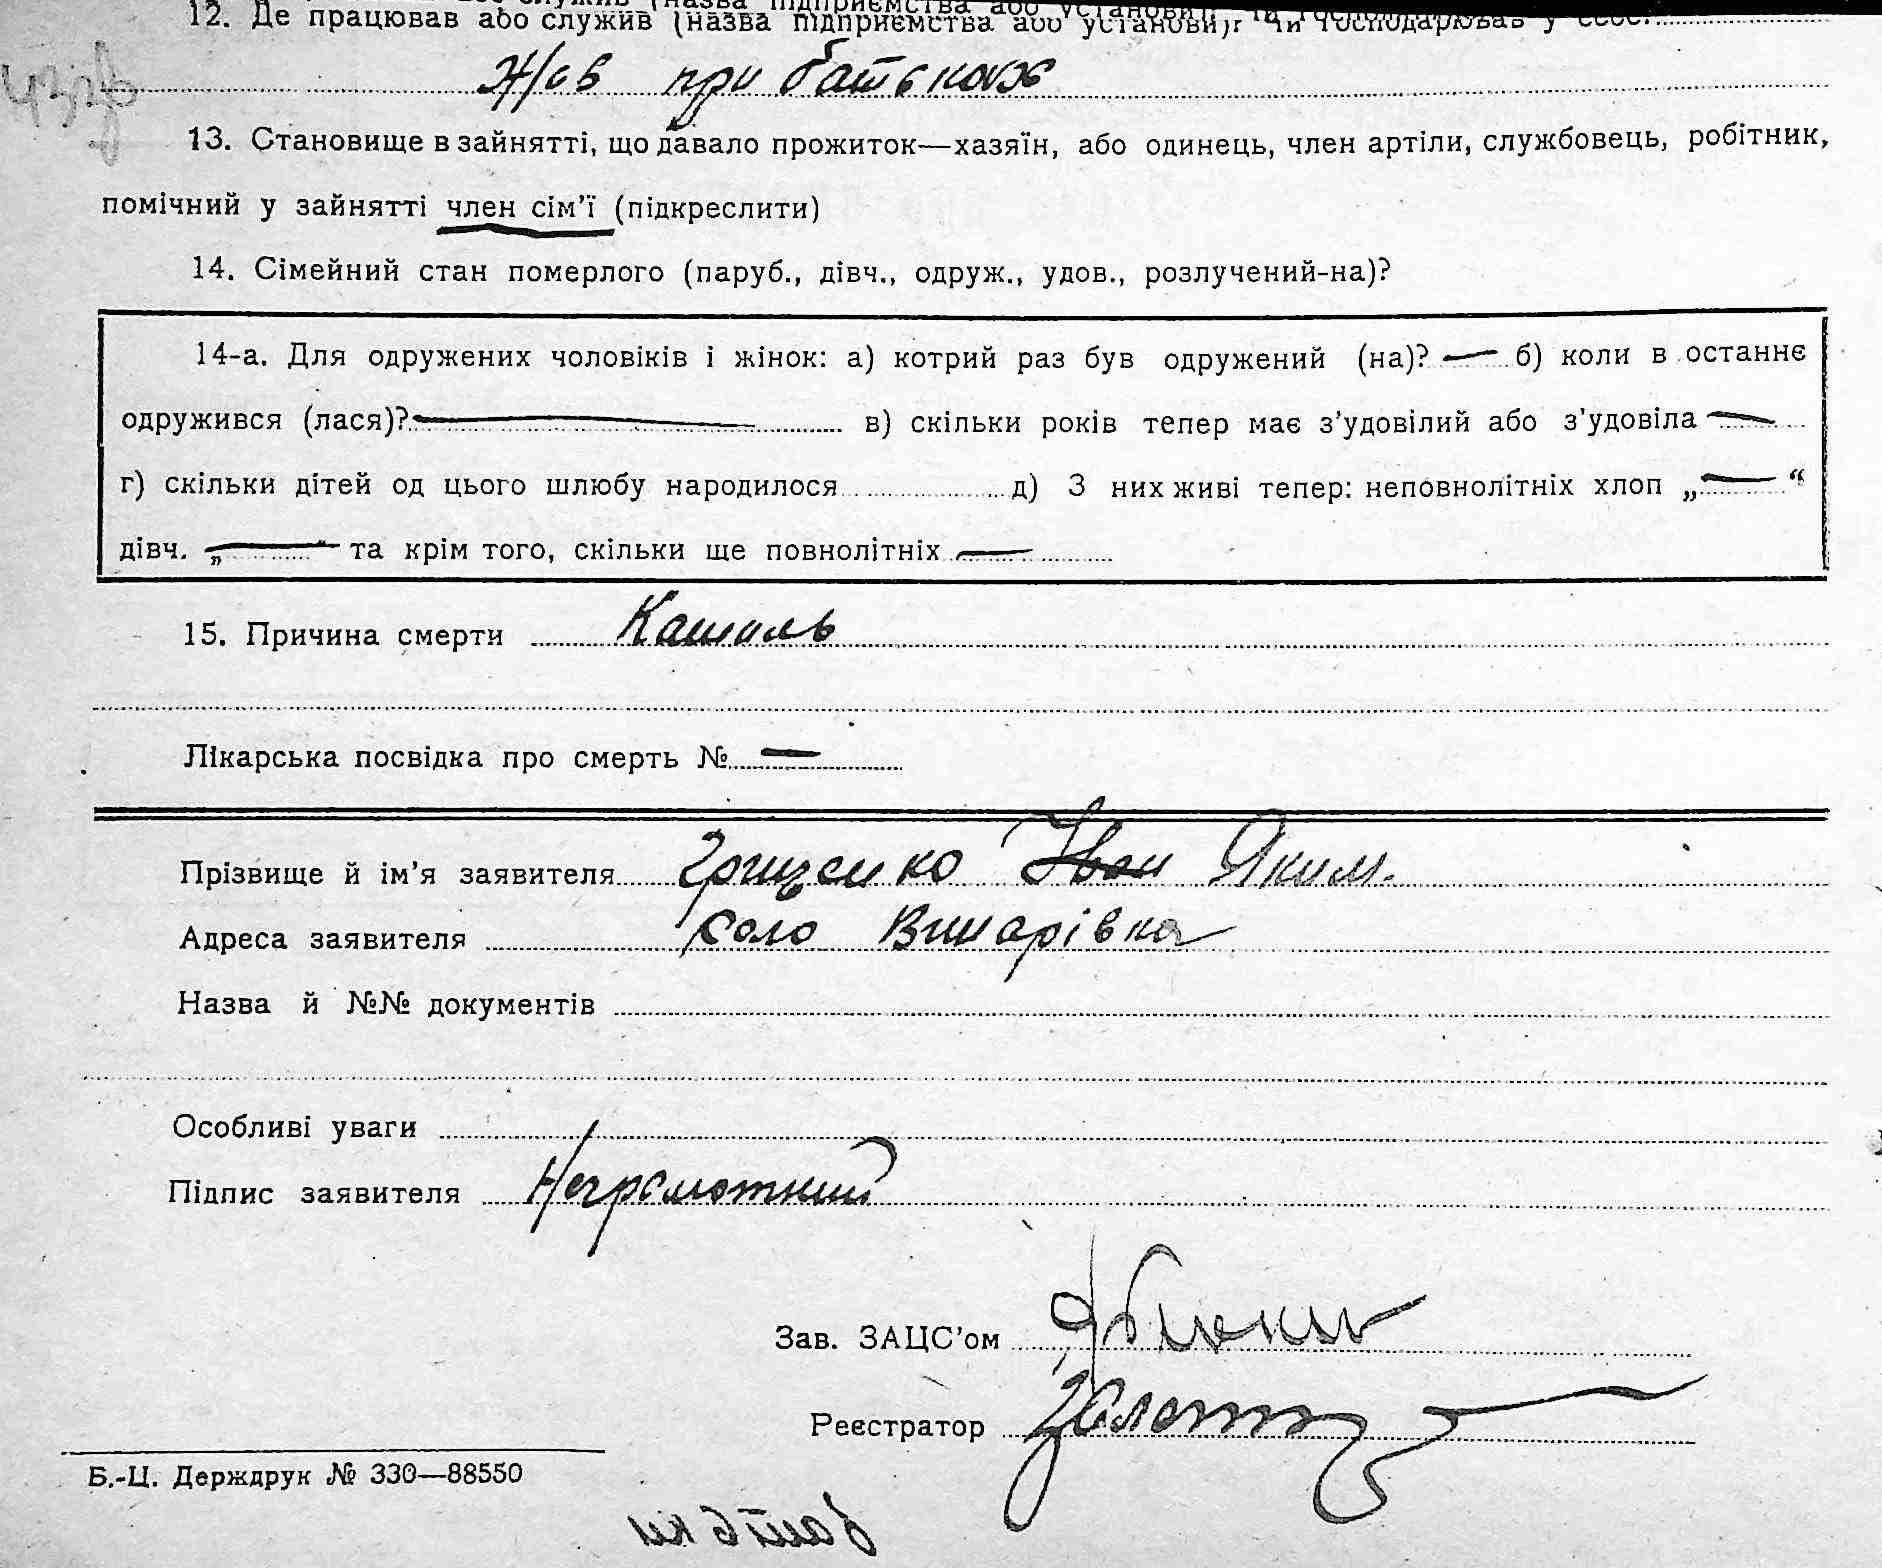 12. Де працював або служив (назва підприємства або установи), чи господарював у
Жив при батьках
13. Становище в зайнятті, що давало прожиток—хазяїн, або одинець, член артіли, службовець, робітник,
помічний у зайнятті член сім'ї (підкреслити)
14. Сімейний стан померлого (паруб., дівч., одруж., удов., розлучений-на)?
14-а. Для одружених чоловіків і жінок: а) котрий раз був одружений (на)? — б) коли в останнє
одружився (лася)? — в) скільки років тепер має з'удовілий або з'удовіла —
г) скільки дітей од цього шлюбу народилося д) З них живі тепер: неповнолітніх хлоп „—“
дівч. „—“ та крім того, скільки ще повнолітніх —
15. Причина смерти Кашиль
Лікарська посвідка про смерть № —
Прізвище й ім'я заявителя Грищенко Іван Яким.
Адреса заявителя Село Винарівка
Назва й №№ документів
Особливі уваги
Підпис заявителя Неграмотний
Зав. ЗАЦС'ом
Реєстратор
Б.-Ц. Держдрук № 330—88550
батьки